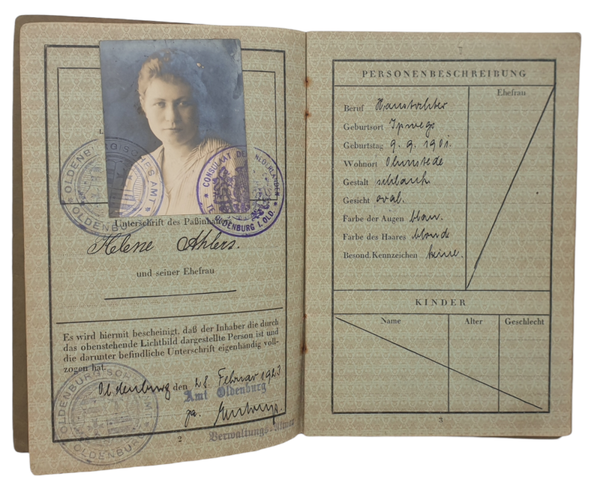 OLDENBURGISCHES AMT
OLDENBURG
CONSULAAT DER NEDERLANDEN
OLDENBURG I.O.
Unterschrift des Paßinhabers
Helene Ahlers.
und seiner Ehefrau
Es wird hiermit bescheinigt, daß der Inhaber die durch
das obenstehende Lichtbild dargestellte Person ist und
die darunter befindliche Unterschrift eigenhändig voll-
zogen hat.
Oldenburg den 28. Februar
Amt Oldenburg
OLDENBURGISCHES AMT
OLDENBURG
2
PERSONENBESCHREIBUNG
Ehefrau
Beruf Haustochter
Geburtsort Ipwege
Geburtstag 9. 9. 1901.
Wohnort Ohmstede
Gestalt schlank
Gesicht oval.
Farbe der Augen blau.
Farbe des Haares blond
Besond. Kennzeichen keine.
KINDER
Name Alter Geschlecht
3